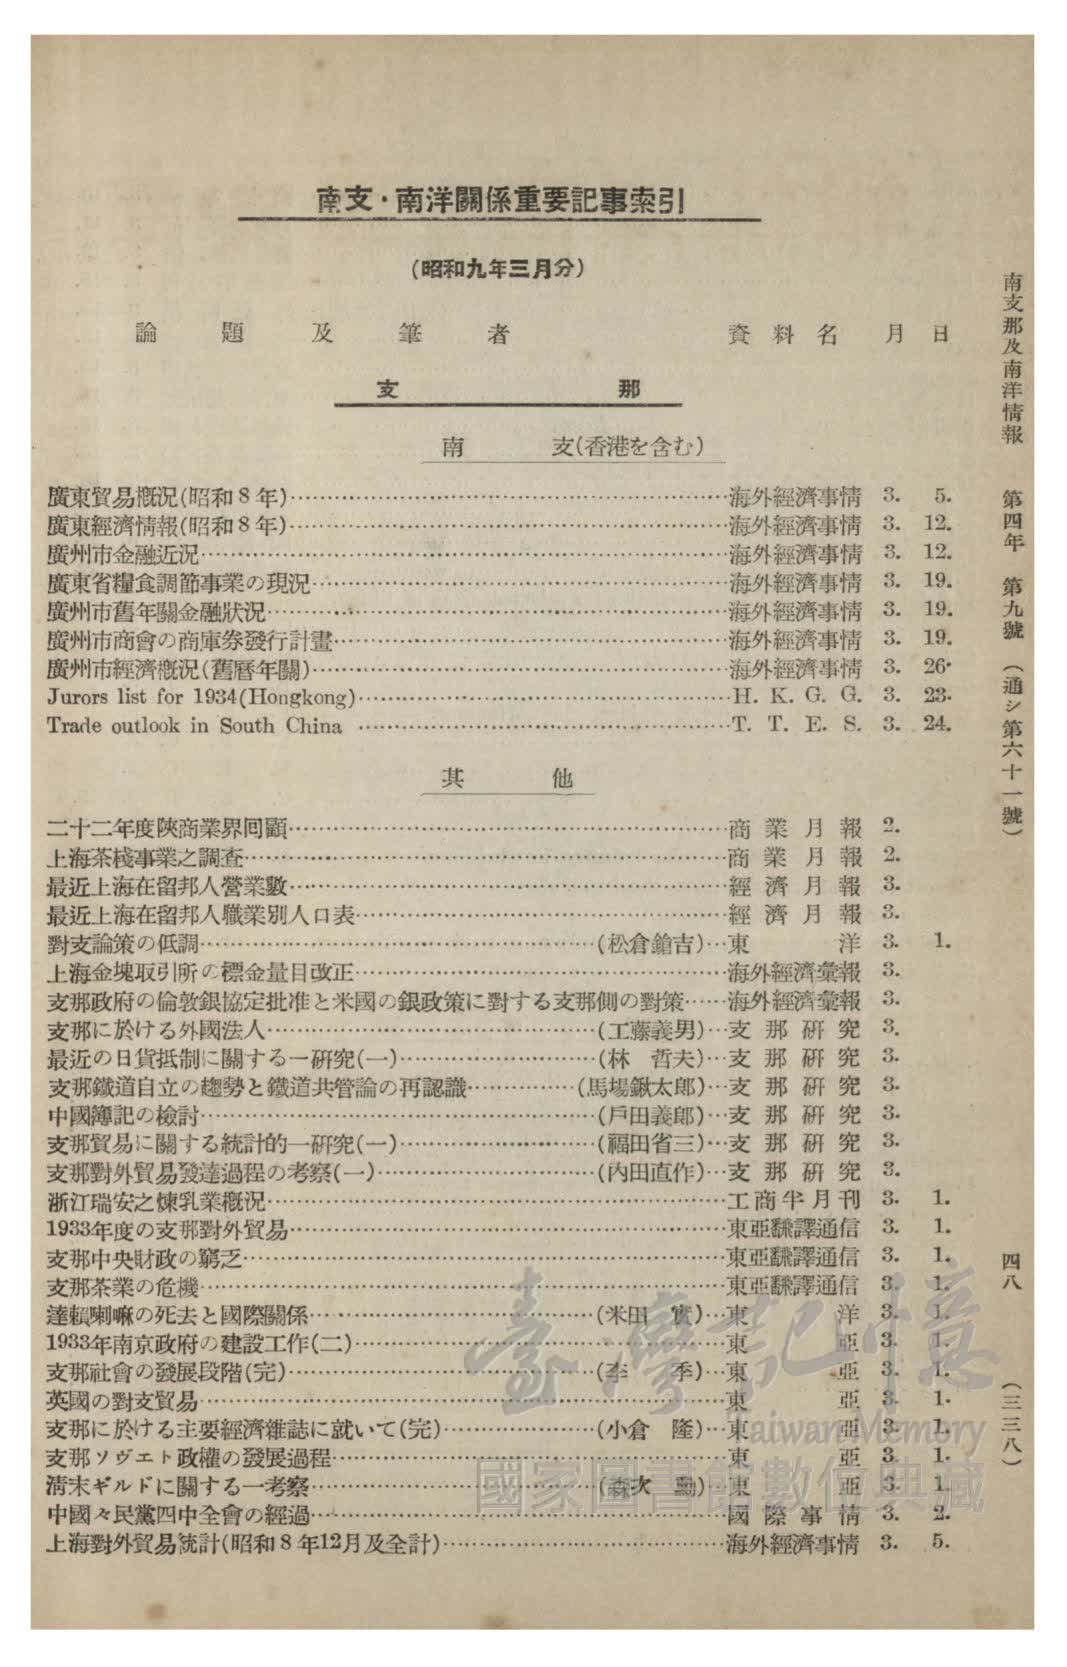 南支・南洋關係重要記事索引
(昭和九年三月分)
論題及筆者 資料名 月日
支那
南支(香港を含む)
廣東貿易概況(昭和8年)……海外經濟事情 3. 5.
廣東經濟情報(昭和8年)……海外經濟事情 3. 12.
廣州市金融近況……海外經濟事情 3. 12.
廣東省糧食調節事業の現況……海外經濟事情 3. 19.
廣州市舊年關金融狀況……海外經濟事情 3. 19.
廣州市商會の商庫券發行計畫……海外經濟事情 3. 19.
廣州市經濟概況(舊曆年關)……海外經濟事情 3. 26.
Jurors list for 1934(Hongkong)……H. K. G. G. 3. 23.
Trade outlook in South China ……T. T. E. S. 3. 24.
其他
二十二年度陜商業界囘顧……商業月報 2.
上海茶棧事業之調査……商業月報 2.
最近上海在留邦人營業數……經濟月報 3.
最近上海在留邦人職業別人口表……經濟月報 3.
對支論策の低調……(松倉鎗吉)…東洋 3. 1.
上海金塊取引所の標金量目改正……海外經濟彙報 3.
支那政府の倫敦銀協定批准と米國の銀政策に對する支那側の對策……海外經濟彙報 3.
支那に於ける外國法人……(工藤義男)…支那硏究 3.
最近の日貨抵制に關する一硏究(一)……(林 哲夫)…支那硏究 3.
支那鐵道自立の趨勢と鐵道共管論の再認識……(馬場鍬太郎)…支那硏究 3.
中國簿記の檢討……(戶田義郎)…支那硏究 3.
支那貿易に關する統計的一硏究(一)……(福田省三)…支那硏究 3.
支那對外貿易發達過程の考察(一)……(內田直作)…支那硏究 3.
浙江瑞安之煉乳業概況……工商半月刊 3. 1.
1933年度の支那對外貿易……東亞飜譯通信 3. 1.
支那中央財政の窮乏……東亞飜譯通信 3. 1.
支那茶業の危機……東亞飜譯通信 3. 1.
達賴喇嘛の死去と國際關係……(米田 實)…東洋 3. 1.
1933年南京政府の建設工作(二)……東亞 3. 1.
支那社會の發展段階(完)……(李 季)…東亞 3. 1.
英國の對支貿易……東亞 3. 1.
支那に於ける主要經濟雜誌に就いて(完)……(小倉 隆)…東亞 3. 1.
支那ソヴエト政權の發展過程……東亞 3. 1.
淸末ギルドに關する一考察……(森次 勳)…東亞 3. 1.
中國々民黨四中全會の經過……國際事情 3. 2.
上海對外貿易統計(昭和8年12月及全計)……海外經濟事情 3. 5.
南支那及南洋情報 第四年 第九號 (通シ第六十一號)
四八
(三三八)
臺灣記憶
Taiwan Memory
國家圖書館數位典藏